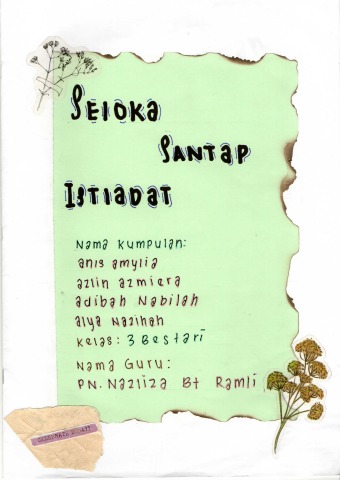 SEIOKA
SANTAP
ISTIADAT
Nama Kumpulan:
anis amylia
azlin azmiera
adibah Nabilah
alya Nazihah
Kelas: 3 Bestari
Nama Guru:
PN. Nazliza Bt Ramli